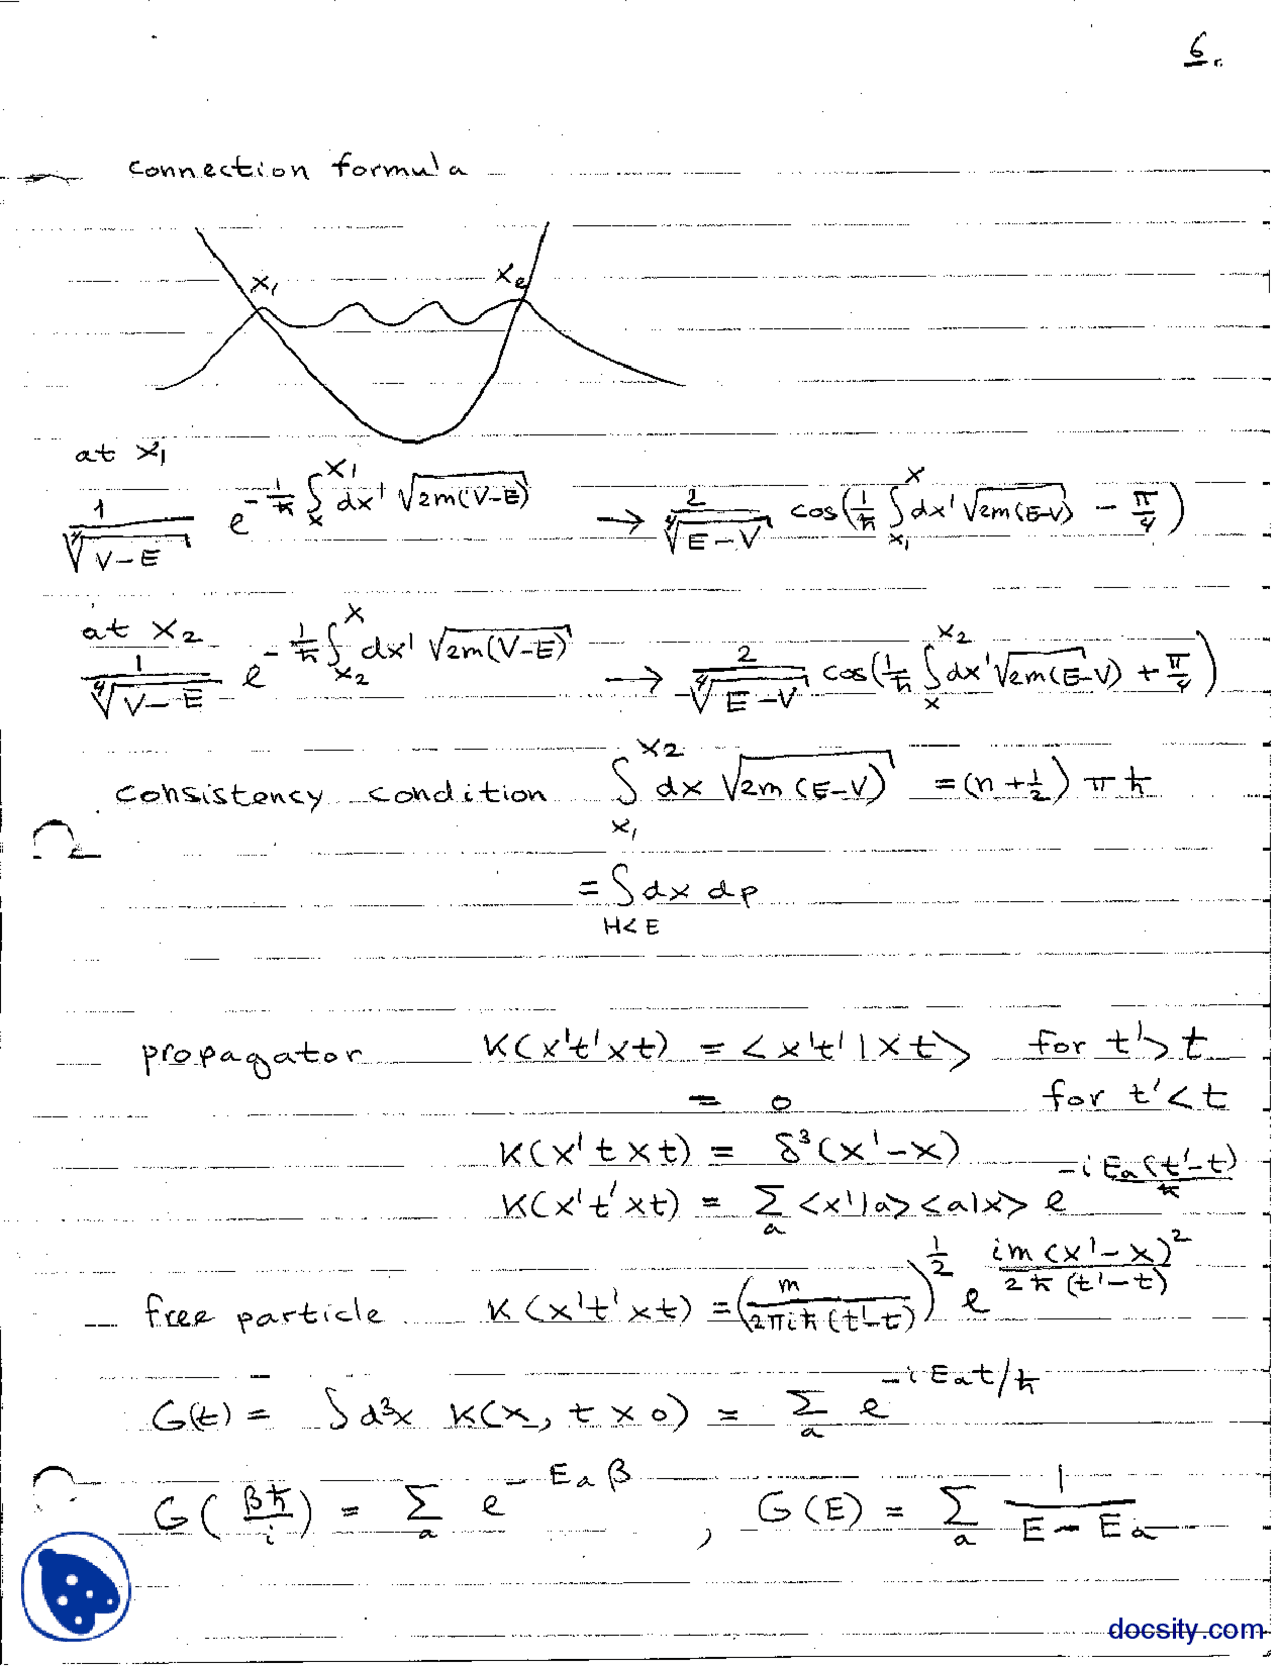 6.
connection formula
x₁ x₂
at x₁
1/∜(V-E) e^{-1/ħ ∫_x^{x₁} dx' √(2m(V-E))} → 2/∜(E-V) cos(1/ħ ∫_{x₁}^x dx' √(2m(E-V)) - π/4)
at x₂
1/∜(V-E) e^{-1/ħ ∫_{x₂}^x dx' √(2m(V-E))} → 2/∜(E-V) cos(1/ħ ∫_x^{x₂} dx' √(2m(E-V)) + π/4)
consistency condition ∫_{x₁}^{x₂} dx √(2m(E-V)) = (n+½) πħ
= ∫_{H<E} dx dp
propagator K(x't'xt) = <x't'|xt> for t'>t
= 0 for t'<t
K(x'txt) = δ³(x'-x)
K(x't'xt) = Σ_a <x'|a><a|x> e^{-i E_a(t'-t)/ħ}
free particle K(x't'xt) = (m/(2πiħ(t'-t)))^{1/2} e^{im(x'-x)²/(2ħ(t'-t))}
G(t) = ∫d³x K(x, t x 0) = Σ_a e^{-iE_a t/ħ}
G(βħ/i) = Σ_a e^{-E_a β} , G(E) = Σ_a 1/(E-E_a)
docsity.com